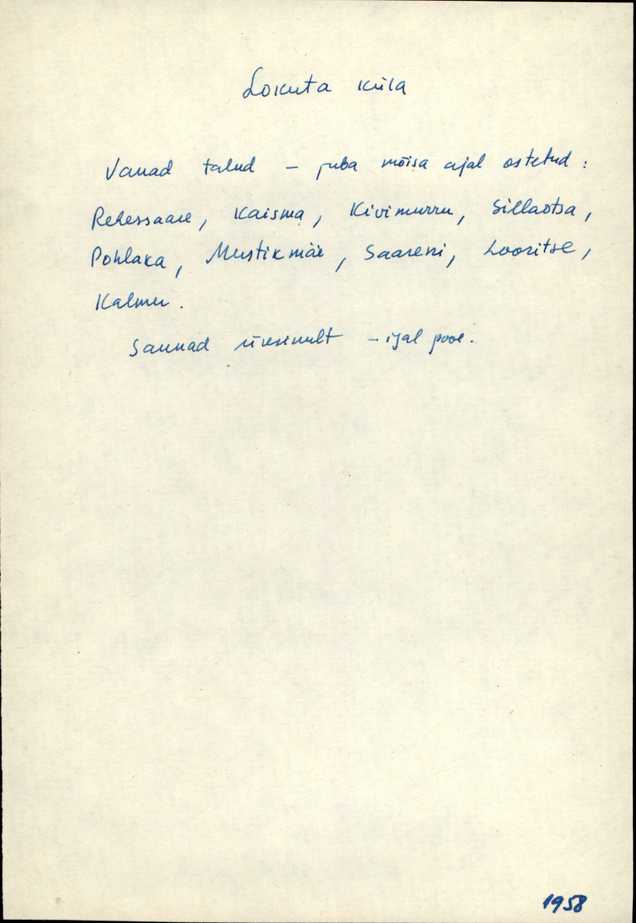 Lokuta küla
Vanad talud – juba mõisa ajal ostetud :
Rehessaare, Kaisma, Kivimurru, Sillaotsa,
Pohlaka, Mustikmäe, Saareni, Looritse,
Kalmu.
Saunad üksinult – igal pool.
1958